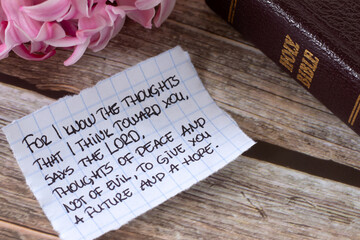 FOR I KNOW THE THOUGHTS
THAT I THINK TOWARD YOU,
SAYS THE LORD,
THOUGHTS OF PEACE AND
NOT OF EVIL, TO GIVE YOU
A FUTURE AND A HOPE.
HOLY
BIBLE